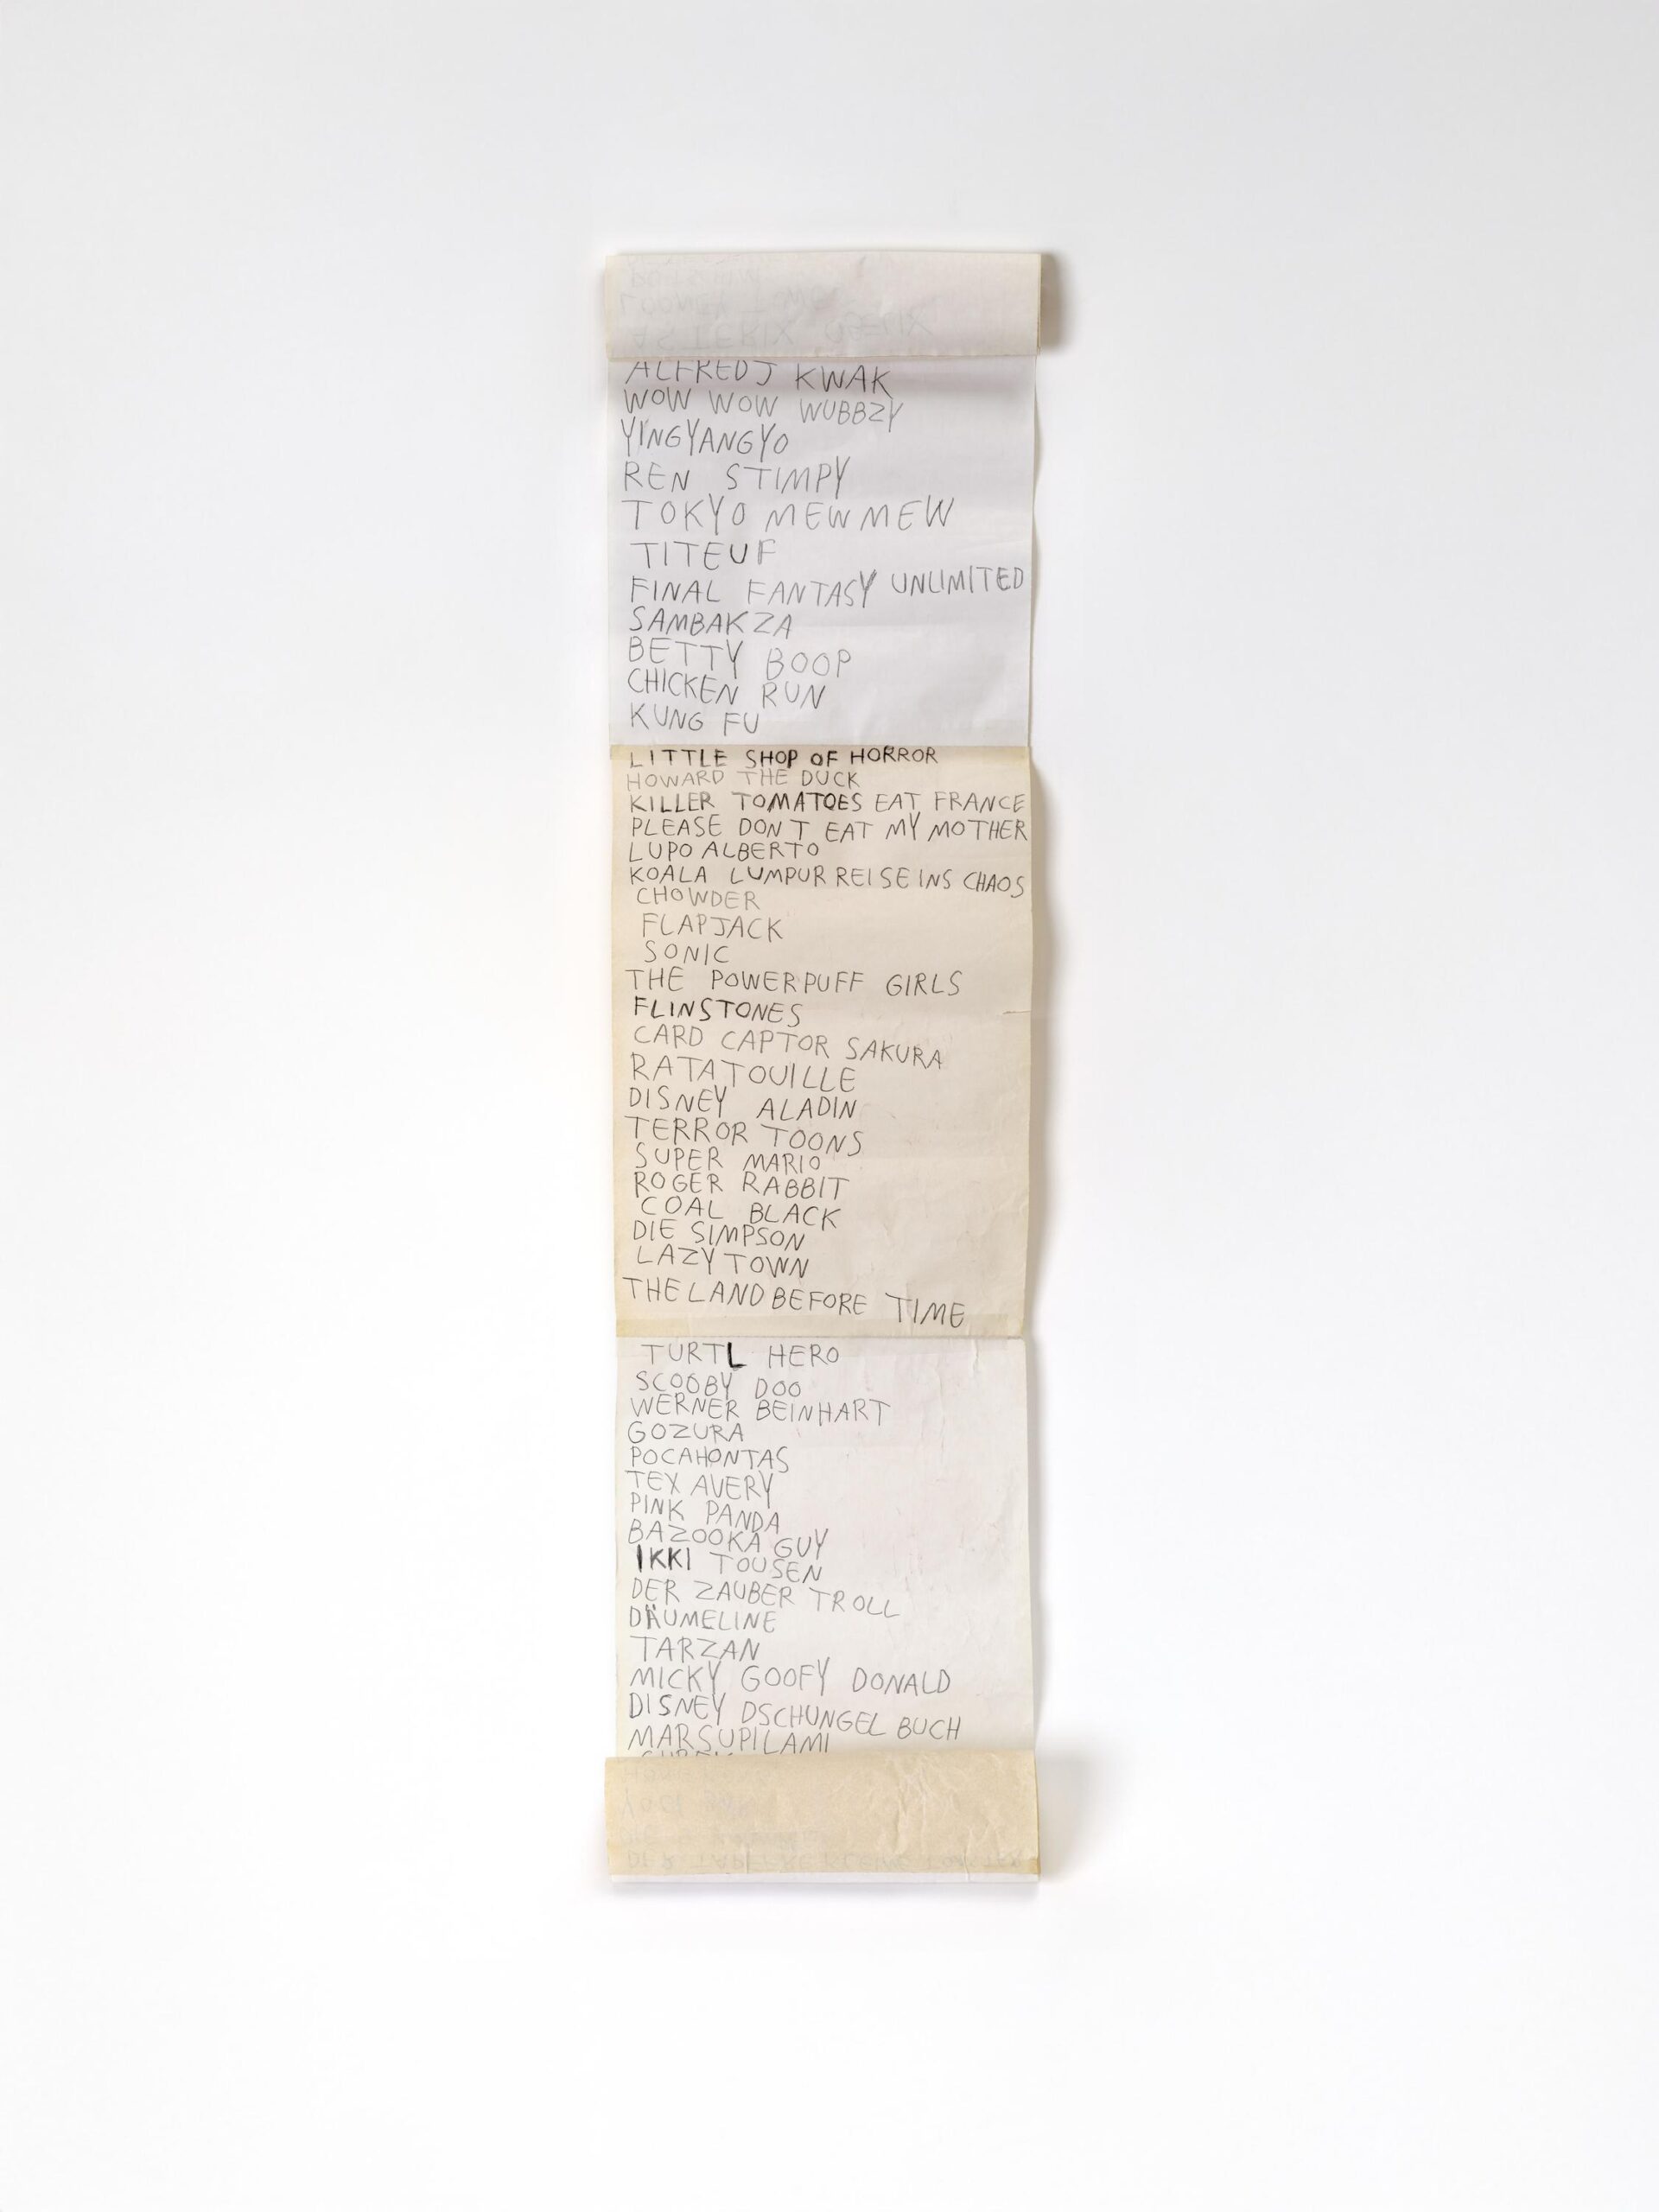 ALFRED J KWAK
WOW WOW WUBBZY
YINGYANGYO
REN STIMPY
TOKYO MEWMEW
TITEUF
FINAL FANTASY UNLIMITED
SAMBAKZA
BETTY BOOP
CHICKEN RUN
KUNG FU
LITTLE SHOP OF HORROR
HOWARD THE DUCK
KILLER TOMATOES EAT FRANCE
PLEASE DON T EAT MY MOTHER
LUPO ALBERTO
KOALA LUMPUR REISE INS CHAOS
CHOWDER
FLAPJACK
SONIC
THE POWERPUFF GIRLS
FLINSTONES
CARD CAPTOR SAKURA
RATATOUILLE
DISNEY ALADIN
TERROR TOONS
SUPER MARIO
ROGER RABBIT
COAL BLACK
DIE SIMPSON
LAZY TOWN
THE LAND BEFORE TIME
TURTL HERO
SCOOBY DOO
WERNER BEINHART
GOZURA
POCAHONTAS
TEX AVERY
PINK PANDA
BAZOOKA GUY
IKKI TOUSEN
DER ZAUBER TROLL
DÄUMELINE
TARZAN
MICKY GOOFY DONALD
DISNEY DSCHUNGEL BUCH
MARSUPILAMI